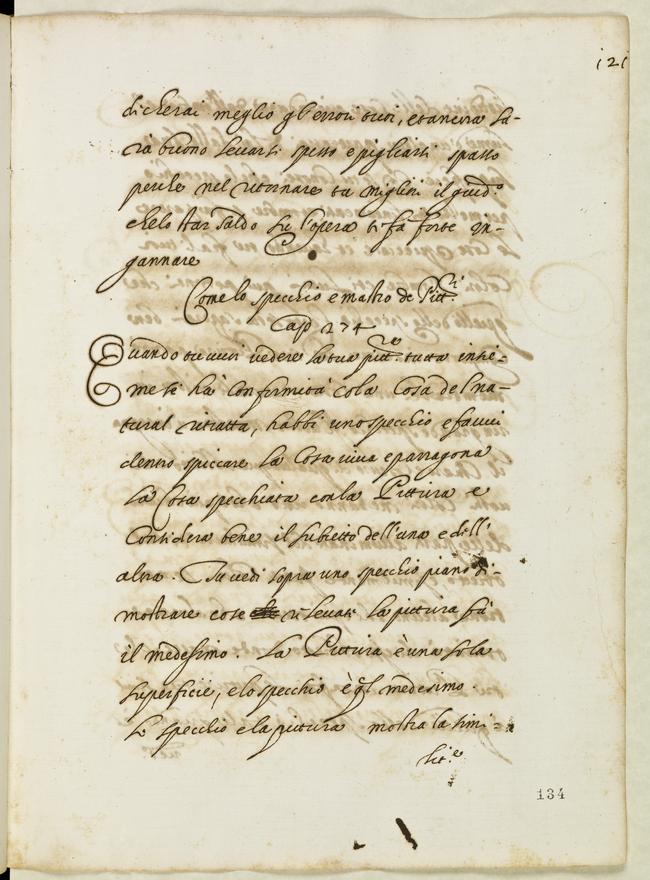 121
dicherai meglio gl'errori tuoi, et ancora sa-
rà buono levarsi spesso e pigliarsi spasso
perche nel ritornare tu migliori il giud.o
che lo star saldo su l'opera ti fà forte in-
gannare
Come lo specchio e mastro de Pitt.ri
Cap 274
Quando tu vuoi vedere la tua pitt.ra tutta insie-
me se hà conformità cola cosa del na-
tural ritratta, habbi uno specchio e favvi
dentro spiccare la cosa viva e parragona
la cosa specchiata con la Pittura e
considera bene il subietto dell'una e dell'
altra. Tu vedi sopra uno specchio piano di-
mostrare cose rilevate la pittura fà
il medesimo. La Pittura è una sola
superficie, e lo specchio è q̃l medesimo.
Lo specchio e la pittura mostra la simi-
lit.e
134